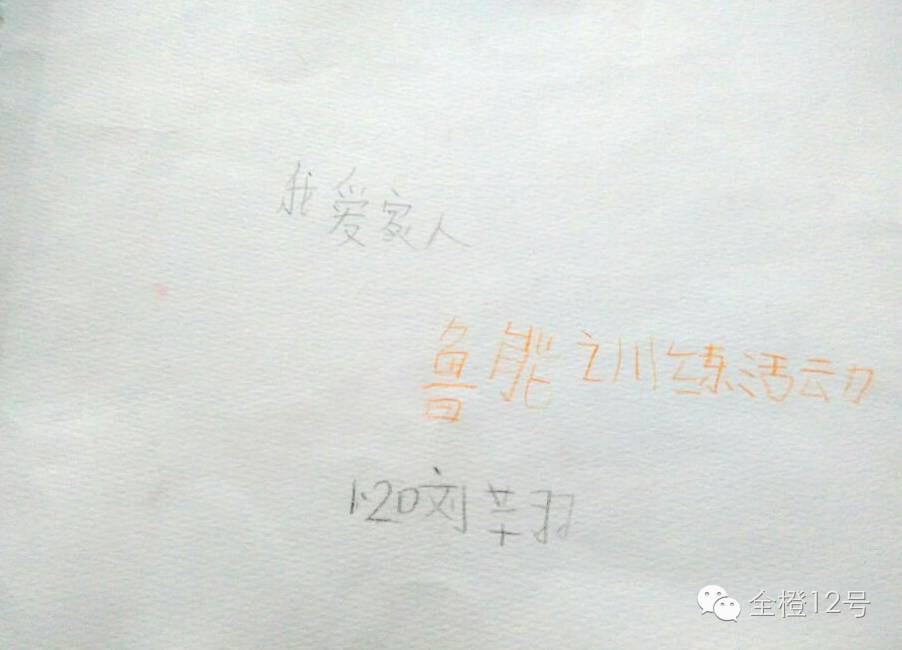 我爱家人
鲁能训练活动
1·20刘芊羽
全橙12号